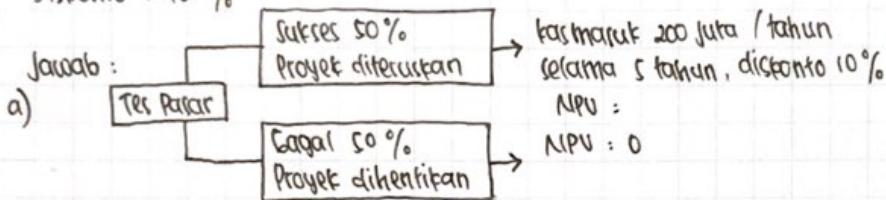 Jawab :
a)
Tes Pasar
Sukses 50%
Proyek diteruskan
kas masuk 200 juta / tahun
selama 5 tahun, diskonto 10%
NPV :
Gagal 50%
Proyek dihentikan
NPV : 0